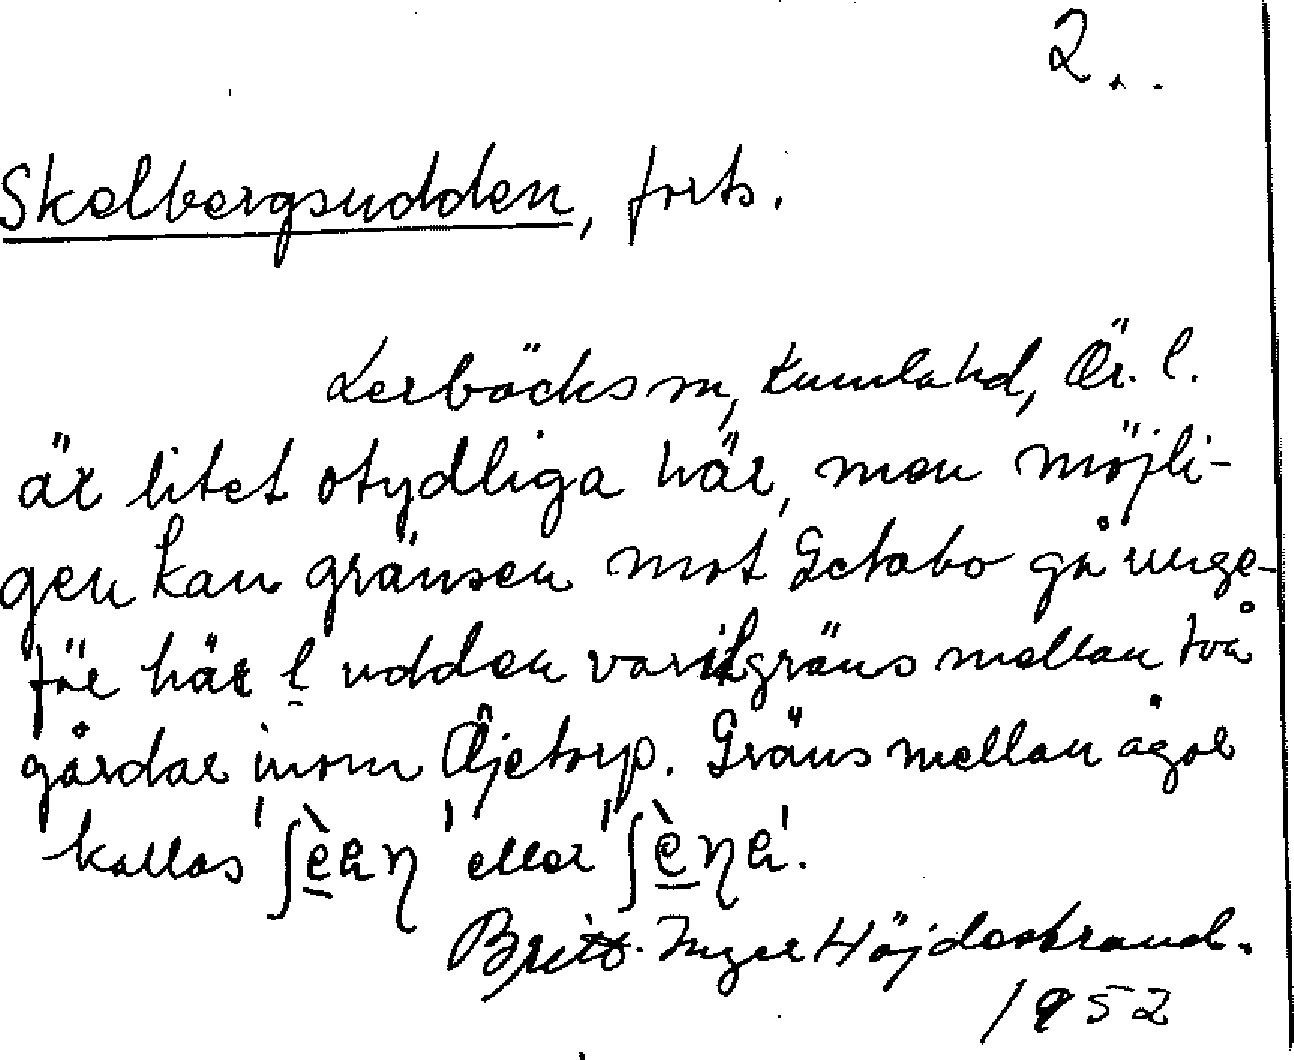 2..
Skelbergsudden, forts.
Lerbäcks sn, Kumla hd, Ör. l.
är litet otydliga här, men möjli-
gen kan gränsen mot Getabo gå unge-
för här l udden varit gräns mellan två
gårdar inom Öjetorp. Gräns mellan ägor
kallas 'ʃè̱ən' eller 'ʃè̱nə'.
Britt-Inger Höjdestrand.
1952